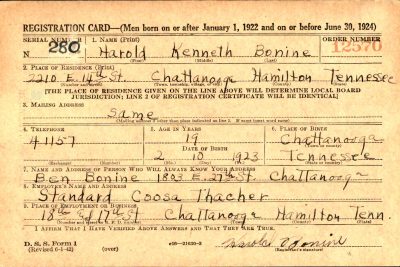 REGISTRATION CARD—(Men born on or after January 1, 1922 and on or before June 30, 1924)
SERIAL NUMBER 1. Name (Print) ORDER NUMBER
N 280 Harold Kenneth Bonine 12570
(First) (Middle) (Last)
2. PLACE OF RESIDENCE (Print)
2210 E. 14th St. Chattanooga Hamilton Tennessee
[THE PLACE OF RESIDENCE GIVEN ON THE LINE ABOVE WILL DETERMINE LOCAL BOARD
JURISDICTION; LINE 2 OF REGISTRATION CERTIFICATE WILL BE IDENTICAL]
3. MAILING ADDRESS
Same
[Mailing address if other than place indicated on line 2. If same insert word same]
4. TELEPHONE 5. AGE IN YEARS 6. PLACE OF BIRTH
41157 19 Chattanooga
DATE OF BIRTH
2 10 1923 Tennessee
(Exchange) (Number) (Mo.) (Day) (Yr.) (State or country)
7. NAME AND ADDRESS OF PERSON WHO WILL ALWAYS KNOW YOUR ADDRESS
Ben Bonine 1803 E. 27th St. Chattanooga
8. EMPLOYER'S NAME AND ADDRESS
Standard Coosa Thacher
9. PLACE OF EMPLOYMENT OR BUSINESS
18th 17th St Chattanooga Hamilton Tenn.
I AFFIRM THAT I HAVE VERIFIED ABOVE ANSWERS AND THAT THEY ARE TRUE.
D. S. S. Form 1
(Revised 6-1-42) (over) Harold Bonine